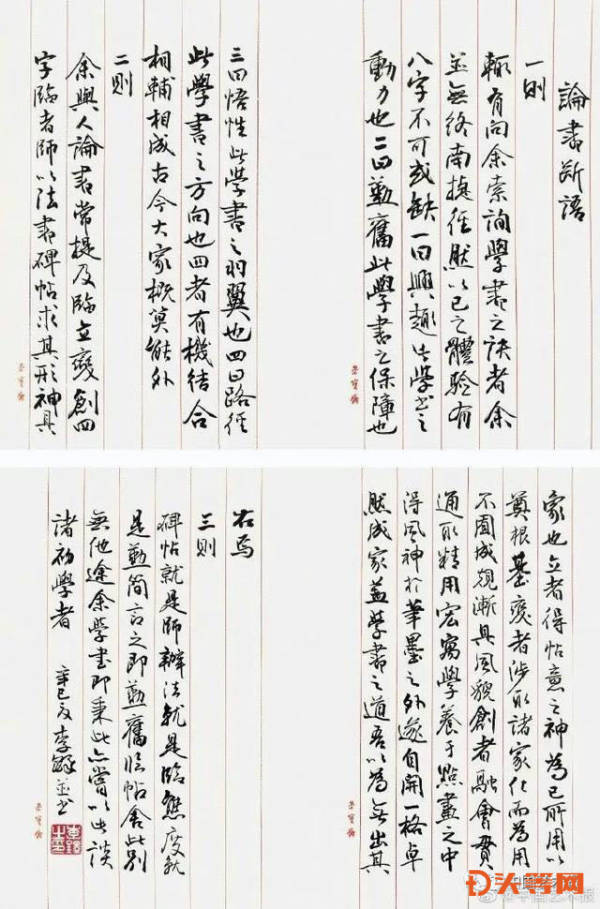 論書斷語
一則
輒有向余索詢學書之訣者余
並無終南捷徑然以己之體驗有
八字不可或缺一曰興趣此學書之
動力也二曰勤奮此學書之保障也
三曰悟性此學書之羽翼也四曰路徑
此學書之方向也四者有機結合
相輔相成古今大家概莫能外
二則
余與人論書常提及臨立變創四
字臨者師以法書碑帖求其形神具
象也立者得帖意之神為己所用以
奠根基變者涉取諸家化而為用
不囿成規漸具風貌創者融會貫
通取精用宏寓學養于點畫之中
得風神於筆墨之外遂自開一格卓
然成家蓋學書之道吾以為無出其
右焉
三則
碑帖就是師辦法就是臨態度就
是勤簡言之即勤奮臨帖舍此別
無他途余學書即秉此亦嘗以此談
諸初學者
辛巳夏李鐸並書
头等网